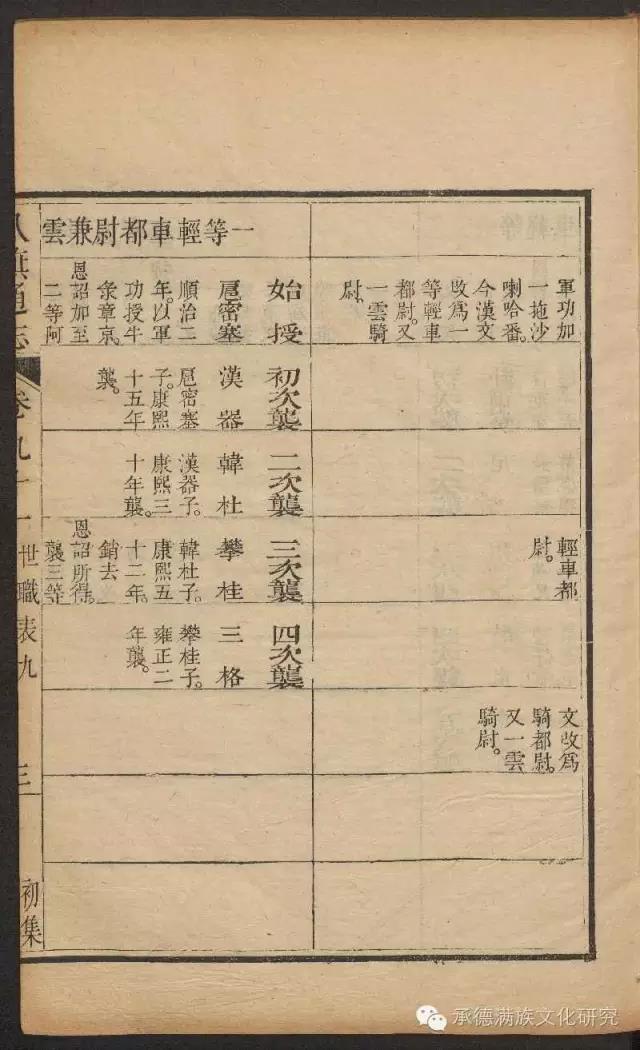 軍功加
一拖沙
喇哈番。
今漢文
改爲一
等輕車
都尉。又
一雲騎
尉。
輕車都
尉。
文改爲
騎都尉。
又一雲
騎尉。
一等輕車都尉兼雲
始授
扈密塞
順治二
年。以軍
功授牛
彔章京。
恩詔加至
二等阿
初次襲
漢器
扈密塞
子。康熙
十五年
襲。
二次襲
韓杜
漢器子。
康熙三
十年襲。
三次襲
攀桂
韓杜子。
康熙五
十二年。
銷去
恩詔所得。
襲三等
四次襲
三格
攀桂子。
雍正二
年襲。
八旗通志 卷九十一 世職表九 三 初集
承德满族文化研究